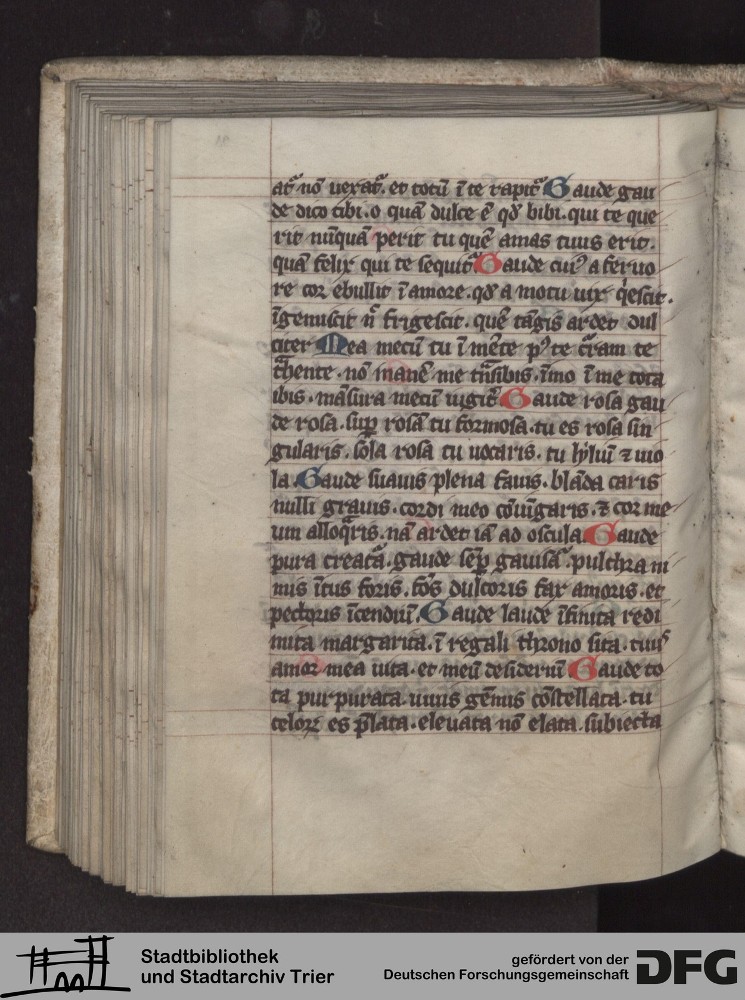 at᷑ nō uexat᷑. et totū ī te rapit᷑ Gaude gau
de dico tibi. o quā dulce ē qđ bibi. qui te que
rit nūquā perit tu quē amas tuus erit.
quā felix qui te sequit᷑ Gaude cuiꝰ a feruo
re cor ebullit ī amore. qđ a motu uix q̇escit.
īgemiscit nō frigescit. quē tāgis ardet dul
citer Mea mecū tu ī mēte pꝰ te tͣram te
thente. nō manē me tͣnsibis. īmo ī me tota
ibis. māsura mecū iugit᷑ Gaude rosa gau
de rosa. suꝑ rosā tu formosa. tu es rosa sin
gularis. sola rosa tu uocaris. tu lyliū ⁊ uio
la. Gaude suauis plena fauis. blāda caris
nulli grauis. cordi meo cōuīgaris. ⁊ cor me
um alloq̄ris. nā ardet iā ad oscula Gaude
pura creata. gaude semp̄ gauisa. pulchra ni
mis ītus foris. fōs dulcoris fax amoris. et
pectoris īcendiū. Gaude laude īfinita redi
mita margarita. ī regali throno sita. tuus
amor mea uita. et meū desideriū Gaude to
ta purpurata. uiuis gēmis cōstellata. tu
celoꝝ es p̄lata. eleuata nō elata. subiecta
Stadtbibliothek
und Stadtarchiv Trier
gefördert von der
Deutschen Forschungsgemeinschaft
DFG